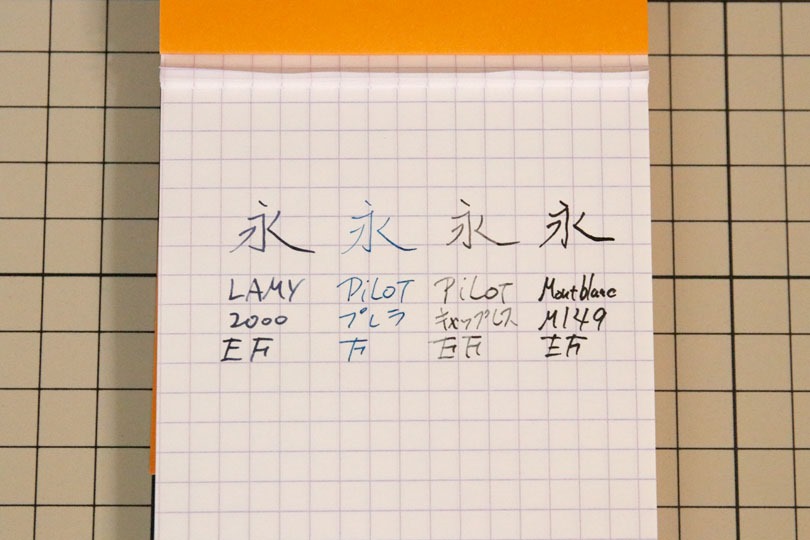 永 永 永 永
LAMY PiLOT PiLOT Montblanc
2000 プレラ キャップレス M149
EF F EF EF